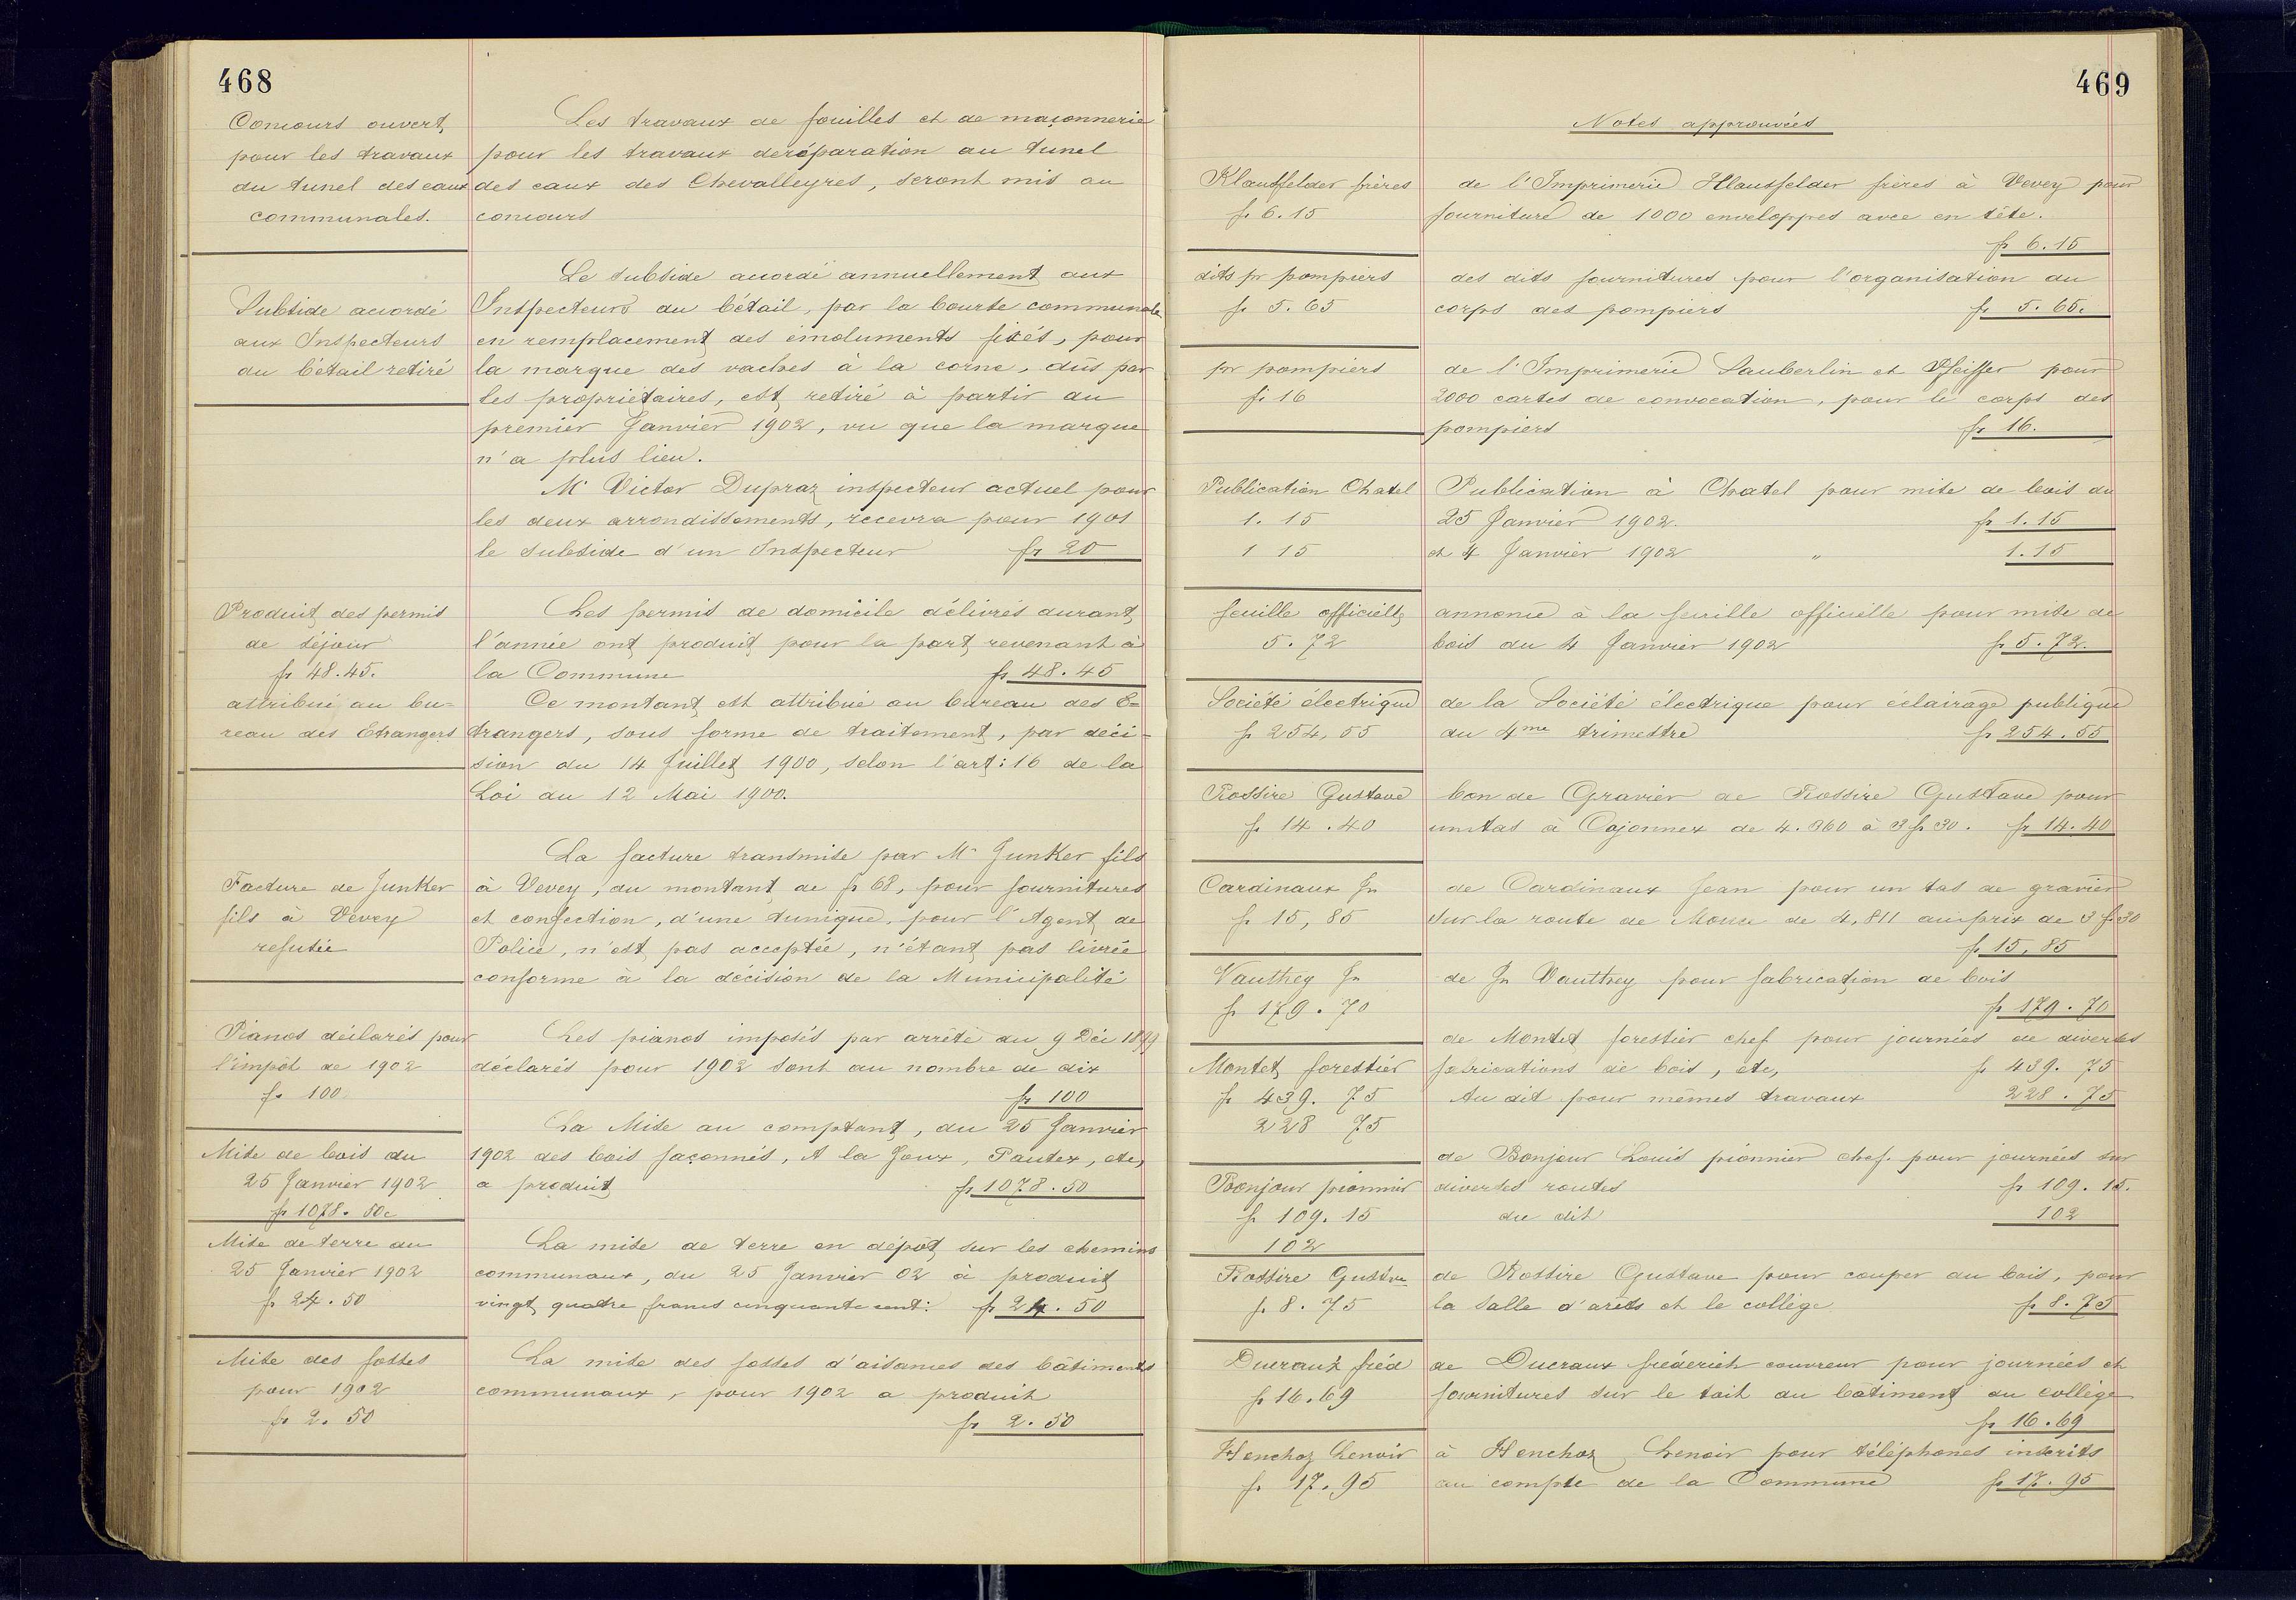 468
Concours ouvert
pour les travaux
du tunel des eaux
communales.
Les travaux de fouilles et de maçonnerie
pour les travaux de réparation au tunel
des eaux des Chevalleyres, seront mis au
concours
Subside accordé
aux Inspecteurs
du bétail retiré
Le subside accordé annuellement aux
Inspecteurs du bétail, par la bourse communale
en remplacement des émoluments fixés, pour
la marque des vaches à la corne, dûs par
les propriétaires, est retiré à partir du
premier Janvier 1902, vu que la marque
n'a plus lieu.
Mr Victor Dupraz inspecteur actuel pour
les deux arrondissements, recevra pour 1901
le subside d'un Inspecteur fr 20
Produit des permis
de séjour
fr 48.45.
attribué au bu=
reau des Etrangers
Les permis de domicile délivrés durant
l'année ont produit pour la part revenant à
la Commune fr 48.45
Ce montant est attribué au bureau des E=
trangers, sous forme de traitement, par déci-
sion du 14 Juillet 1900, selon l'art: 16 de la
Loi du 12 Mai 1900.
Facture de Junker
fils à Vevey
refusée
La facture transmise par Mr Junker fils
à Vevey, au montant de fr 68, pour fournitures
et confection, d'une tunique, pour l'Agent de
Police, n'est pas acceptée, n'étant pas livrée
conforme à la décision de la Municipalité
Pianos déclarés pour
l'impôt de 1902
fr 100
Les pianos imposés par arrêté du 9 Déc 1899
déclarés pour 1902 sont au nombre de dix
fr 100
Mise de bois du
25 Janvier 1902
fr 1078. 50c
La Mise au comptant, du 25 Janvier
1902 des bois façonnés, A la Joux, Pautex, etc,
a produit fr 1078.50
Mise de terre du
25 Janvier 1902
fr 24.50
La mise de terre en dépôt sur les chemins
communaux, du 25 Janvier 02 à produit
vingt quatre francs cinquante cent: fr 24.50
Mise des fosses
pour 1902
fr 2.50
La mise des fosses d'aisances des bâtiments
communaux, pour 1902 a produit
fr 2.50
469
Notes approuvées
Klausfelder frères
fr 6.15
de l'Imprimerie Klausfelder frères à Vevey pour
fourniture de 1000 enveloppes avec en tête.
fr 6.15
dits pr pompiers
fr 5.65
des dits fournitures pour l'organisation du
corps des pompiers fr 5.65.
pr pompiers
fr 16
de l'Imprimerie Sauberlin et Pfeiffer pour
2000 cartes de convocation, pour le corps des
pompiers fr 16.
Publication Chatel
1.15
1 15
Publication à Chatel pour mise de bois du
25 Janvier 1902. fr 1.15
et 4 Janvier 1902 " 1.15
feuille officielle
5.72
annonce à la feuille officielle pour mise de
bois du 4 Janvier 1902 fr 5.72.
Société électrique
fr 254,55
de la Société électrique pour éclairage publique
du 4me trimestre fr 254.55
Rossire Gustave
fr 14.40
bon de Gravier de Rossire Gustave pour
un tas à Cojonnex de 4.360 à 3 fr 30. fr 14.40
Cardinaux Jn
fr 15,85
de Cardinaux Jean pour un tas de gravier
sur la route de de 4,811 au prix de 3 f 30
fr 15,85
Vauthey Jn
fr 179.70
de Jn Vauthey pour fabrication de bois
fr 179.70
Montet forestier
fr 439.75
228 75
de Montet forestier chef pour journées de diverses
fabrications de bois, etc, fr 439.75
Au dit pour mêmes travaux 228.75
Bonjour pionnier
fr 109.15
102
de Bonjour Louis pionnier chef. pour journées sur
diverses routes fr 109.15.
du dit 102
Rossire Gustve
fr 8.75
de Rossire Gustave pour couper du bois, pour
la salle d'arêts et le collège fr 8.75
Ducraux fréd
fr 16.69
de Ducraux fréderich couvreur pour journées et
fournitures sur le toit du bâtiment du collège
fr 16.69
Henchoz Lenoir
fr 17.95
à Henchoz Lenoir pour téléphones inscrits
au compte de la Commune fr 17.95